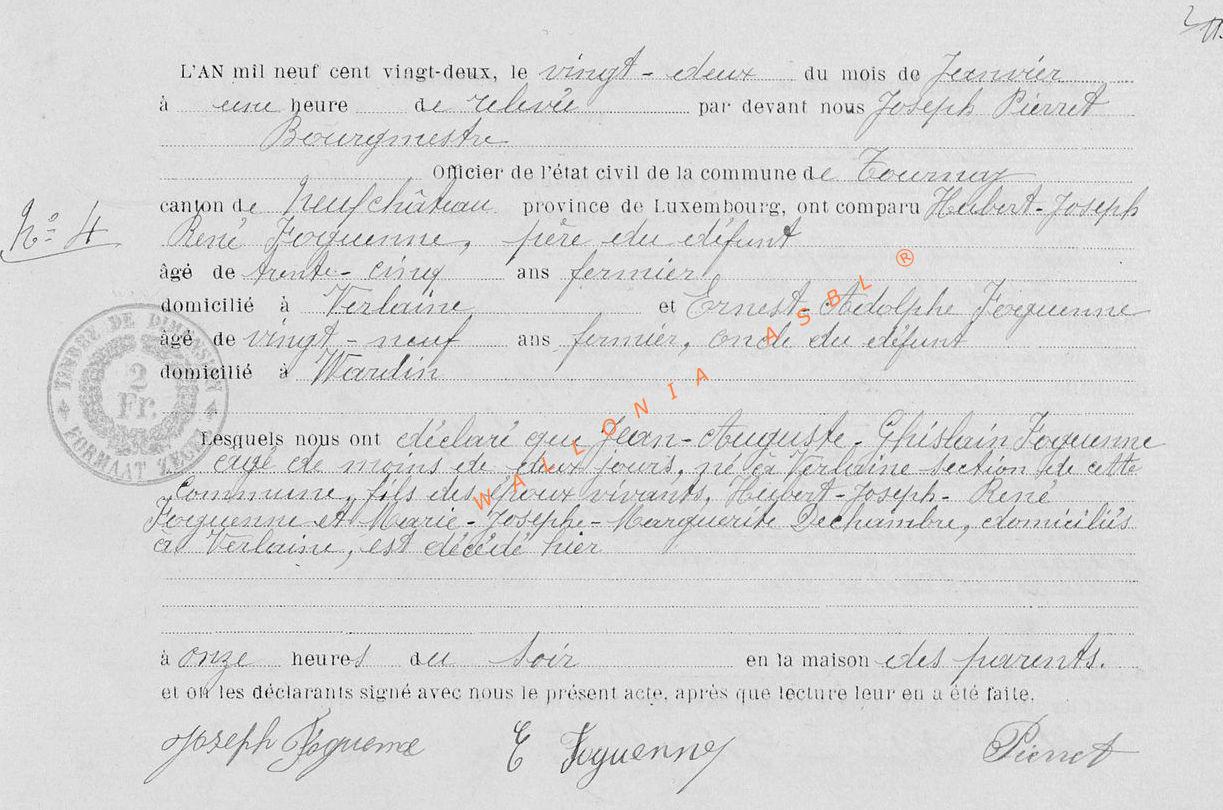 L'AN mil neuf cent vingt-deux, le vingt-deux du mois de Janvier
à une heure de relevée par devant nous Joseph Pierret
Bourgmestre
Officier de l'état civil de la commune de Tournay
canton de Neufchâteau province de Luxembourg, ont comparu Hubert-Joseph
N° 4 René Foguenne, père du défunt
âgé de trente-cinq ans fermier,
domicilié à Verlaine et Ernest-Adolphe Foguenne
âgé de vingt-neuf ans fermier, oncle du défunt
domicilié à Wardin
TIMBRE DE DIMENSION
2
Fr.
FORMAAT ZEGEL
Lesquels nous ont déclaré que Jean-Auguste-Ghislain Foguenne
âgé de moins de deux jours, né à Verlaine section de cette
commune, fils des époux vivants, Hubert-Joseph-René
Foguenne et Marie-Josephe-Marguerite Dechambre, domiciliés
à Verlaine, est décédé hier
à onze heures du soir en la maison des parents.
et on les déclarants signé avec nous le présent acte, après que lecture leur en a été faite.
Joseph Foguenne E Foguenne Pierret
WALLONIA ASBL ®